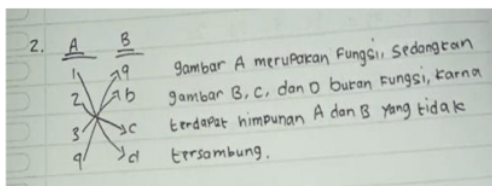 2. A B
1 a
2 b
3 c
4 d
gambar A merupakan Fungsi, Sedangkan
gambar B, C, dan D bukan Fungsi, karna
terdapat himpunan A dan B yang tidak
tersambung.